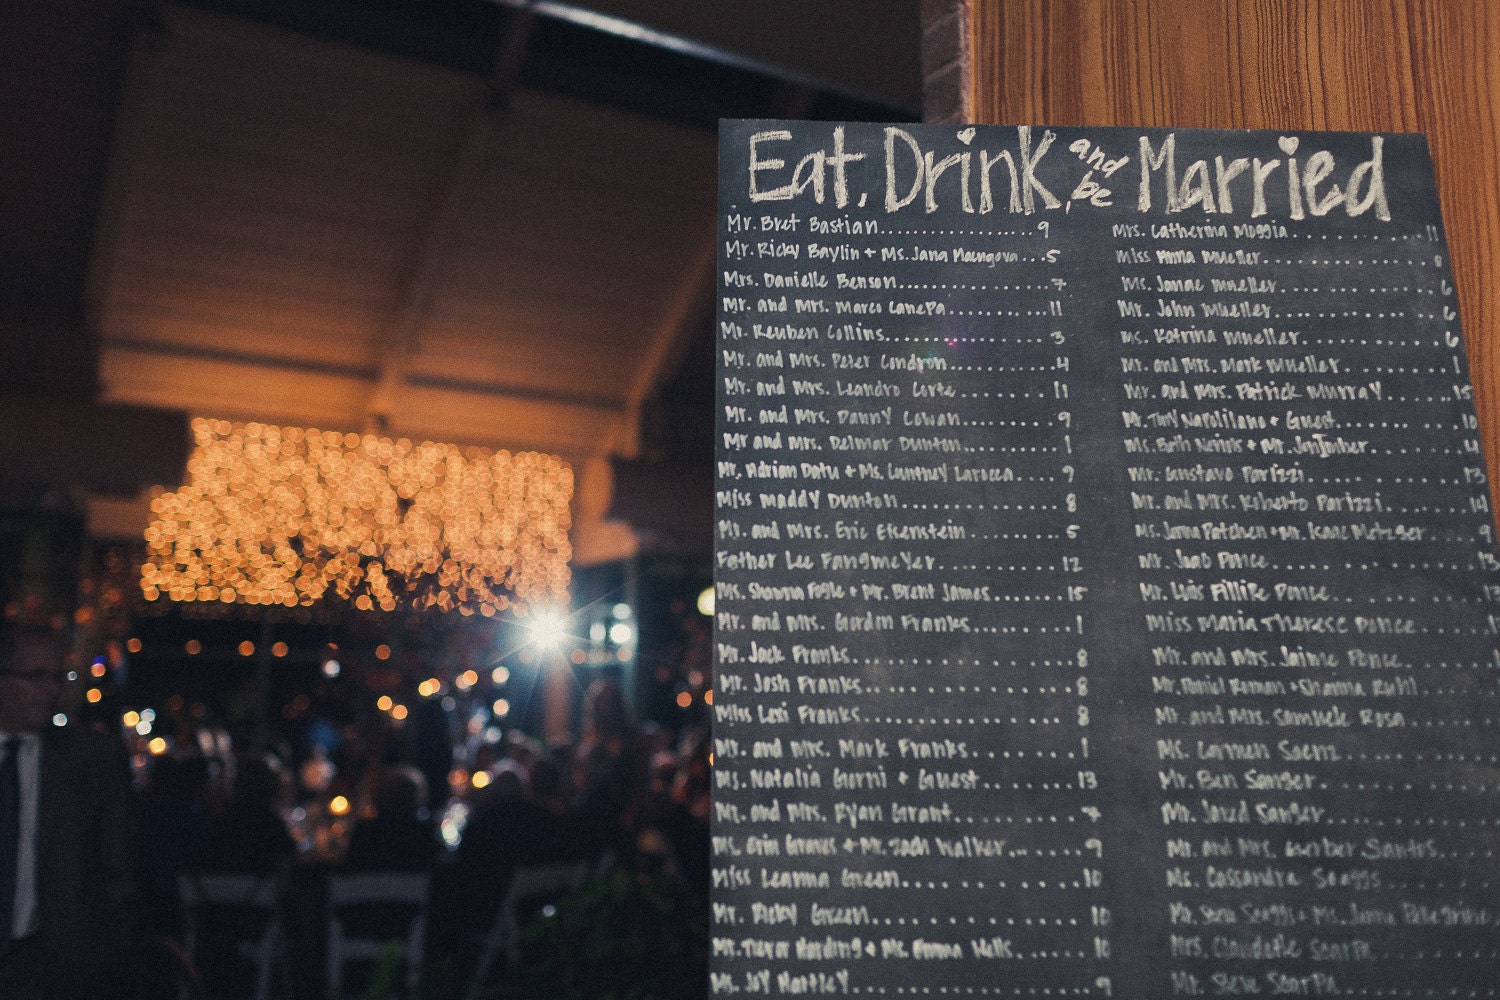 Eat, Drink, and be Married
Mr. Bret Bastian 9
Mr. Ricky Baylin + Ms. Jana 5
Mrs. Danielle Benson 7
Mr. and Mrs. Marco Canepa 11
Mr. Reuben Collins 3
Mr. and Mrs. Peter Condron 4
Mr. and Mrs. Leandro Corte 11
Mr. and Mrs. Danny Cowan 9
Mr and Mrs. Delmar Dunton 1
Mr. Adrian Datu + Ms. Larocca 9
Miss Maddy Dunton 8
Mr. and Mrs. Eric Eisenstein 5
Father Lee Fangmeyer 12
Ms. Shawna Fogle + Mr. Brent James 15
Mr. and Mrs. Gordon Franks 1
Mr. Jack Franks 8
Mr. Josh Franks 8
Miss Lexi Franks 8
Mr. and Mrs. Mark Franks 1
Ms. Natalia Giorni + Guest 13
Mr. and Mrs. Ryan Grant 7
Ms. Erin Graves + Mr. Zach Walker 9
Miss Leanna Green 10
Mr. Ricky Green 10
Mr. Trevor Harding + Ms. Emma Wells 10
Ms. Joy Hartley 9
Mrs. Catherina Moggia 11
Miss Anna Mueller 8
Ms. Janae Mueller 6
Mr. John Mueller 6
Ms. Katrina Mueller 6
Mr. and Mrs. Mark Mueller 1
Mr. and Mrs. Patrick Murray 15
Mr. Tony Napolilano + Guest 10
Ms. Beth + Mr. 4
Mr. Gustavo Parizzi 13
Mr. and Mrs. Roberto Parizzi 14
Ms. Jenna Patchen + Mr. Isaac Metzger 9
Mr. Joao Ponce 13
Mr. Luis Fillipe Ponce
Miss Maria Therese Ponce
Mr. and Mrs. Jaime Ponce
Mr. Daniel Roman + Shanna Ruhl
Mr. and Mrs. Samuele Rosa
Ms. Carmen Saenz
Mr. Ben Sanger
Mr. Jared Sanger
Mr. and Mrs. Santos
Ms. Cassandra Scaggs
Mr. Steve Scaggs + Ms. Jenna Pellegrine
Mrs. Claudette Scarpa
Mr. Steve Scarpa